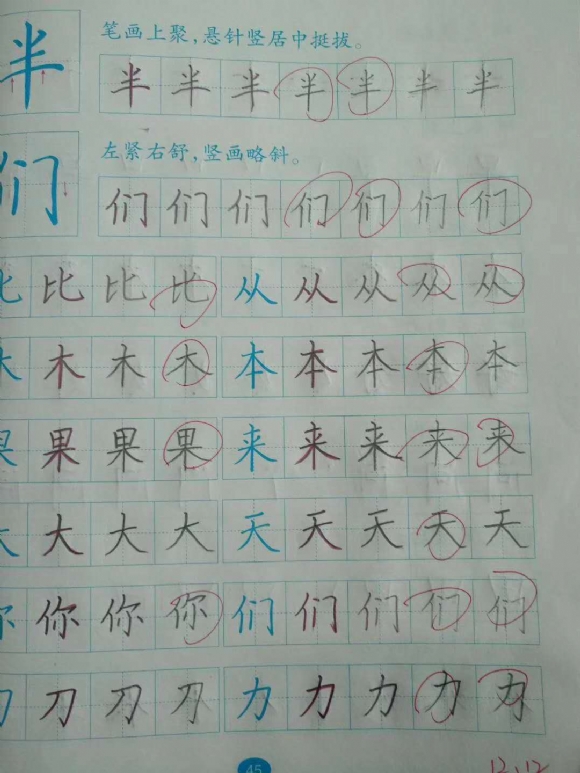 笔画上聚，悬针竖居中挺拔。
半 半 半 半 半 半 半 半
左紧右舒，竖画略斜。
们 们 们 们 们 们 们 们
比 比 比 比 从 从 从 从 从
木 木 木 木 本 本 本 本 本
果 果 果 果 来 来 来 来 来
大 大 大 大 天 天 天 天 天
你 你 你 你 们 们 们 们 们
刀 刀 刀 刀 力 力 力 力 力
45
12.12